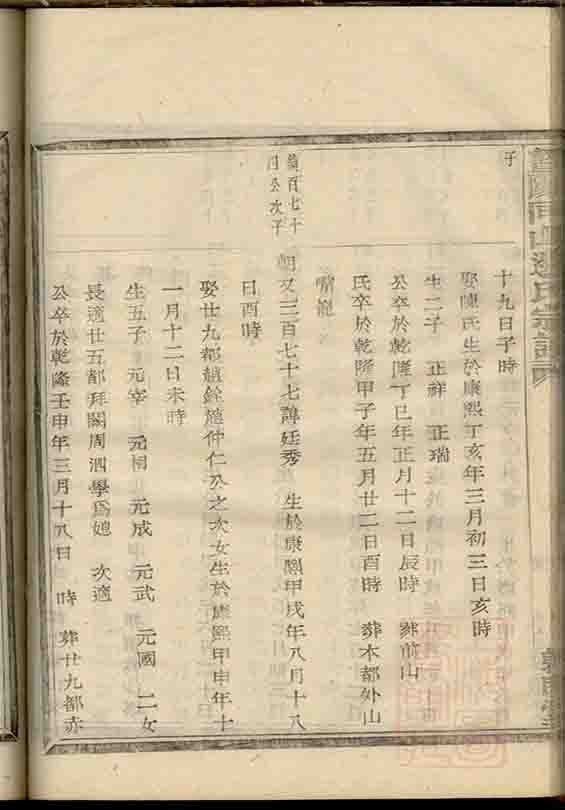 子
十九日子時
娶陳氏生於康熙丁亥年三月初三日亥時
生二子 正祥 正瑞
公卒於乾隆丁巳年正月十二日辰時 葬前山
氏卒於乾隆甲子年五月廿二日酉時 葬本都外山
嘴龍
百七十
四公次子
朝又三百七十七諱廷秀 生於康熙甲戌年八月十八
日酉時
娶廿九都趙銓趙仲仁公之次女生於康熙甲申年十
一月十二日未時
生五子 元宰 元相 元成 元武 元國 二女
長適廿五都拜闕周泗學爲媳 次適
公卒於乾隆壬申年三月十八日 時 葬廿九都赤